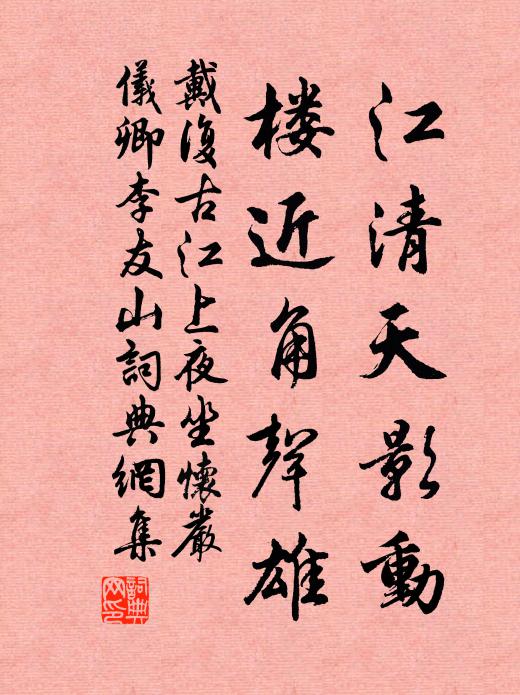 江清天影動
楼近角聲雄
戴復古江上夜坐懷嚴
儀卿李友山詞典網集
詞典網印